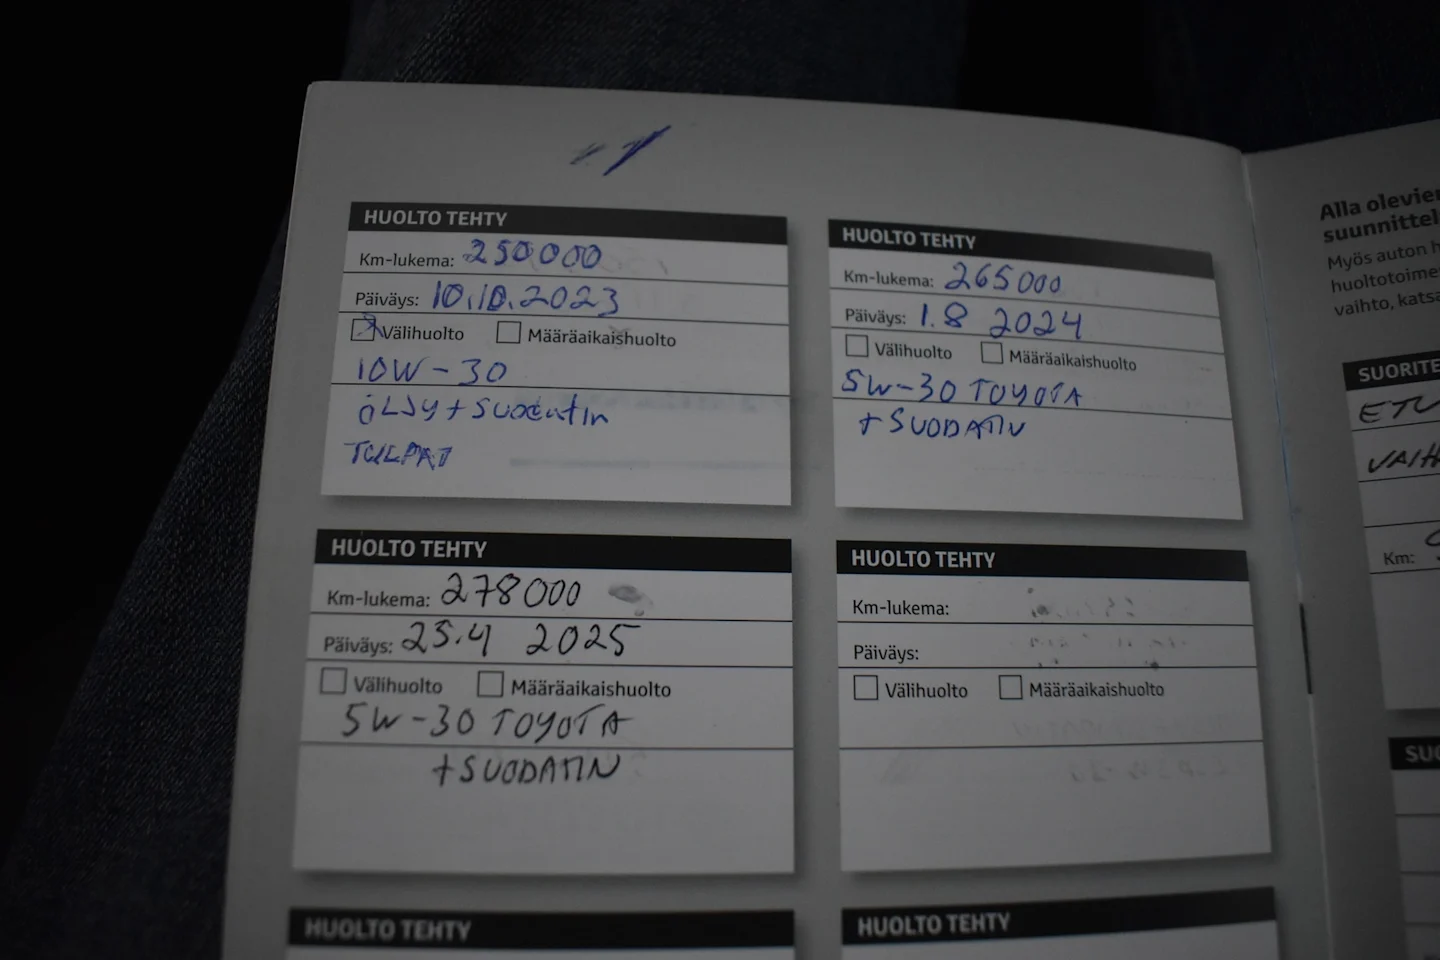 HUOLTO TEHTY
Km-lukema: 250000
Päiväys: 10.10.2023
Välihuolto Määräaikaishuolto
10W-30
öLJy + suodatin
TULPAT
HUOLTO TEHTY
Km-lukema: 265000
Päiväys: 1.8 2024
Välihuolto Määräaikaishuolto
5W-30 TOYOTA
+SUODATIN
HUOLTO TEHTY
Km-lukema: 278000
Päiväys: 25.4 2025
Välihuolto Määräaikaishuolto
5W-30 TOYOTA
+SUODATIN
HUOLTO TEHTY
Km-lukema:
Päiväys:
Välihuolto Määräaikaishuolto
HUOLTO TEHTY
HUOLTO TEHTY
Alla olevien
suunnittel
Myös auton h
huoltotoime
vaihto, katsa
SUORITE
ETU
VAIH
Km:
SUO